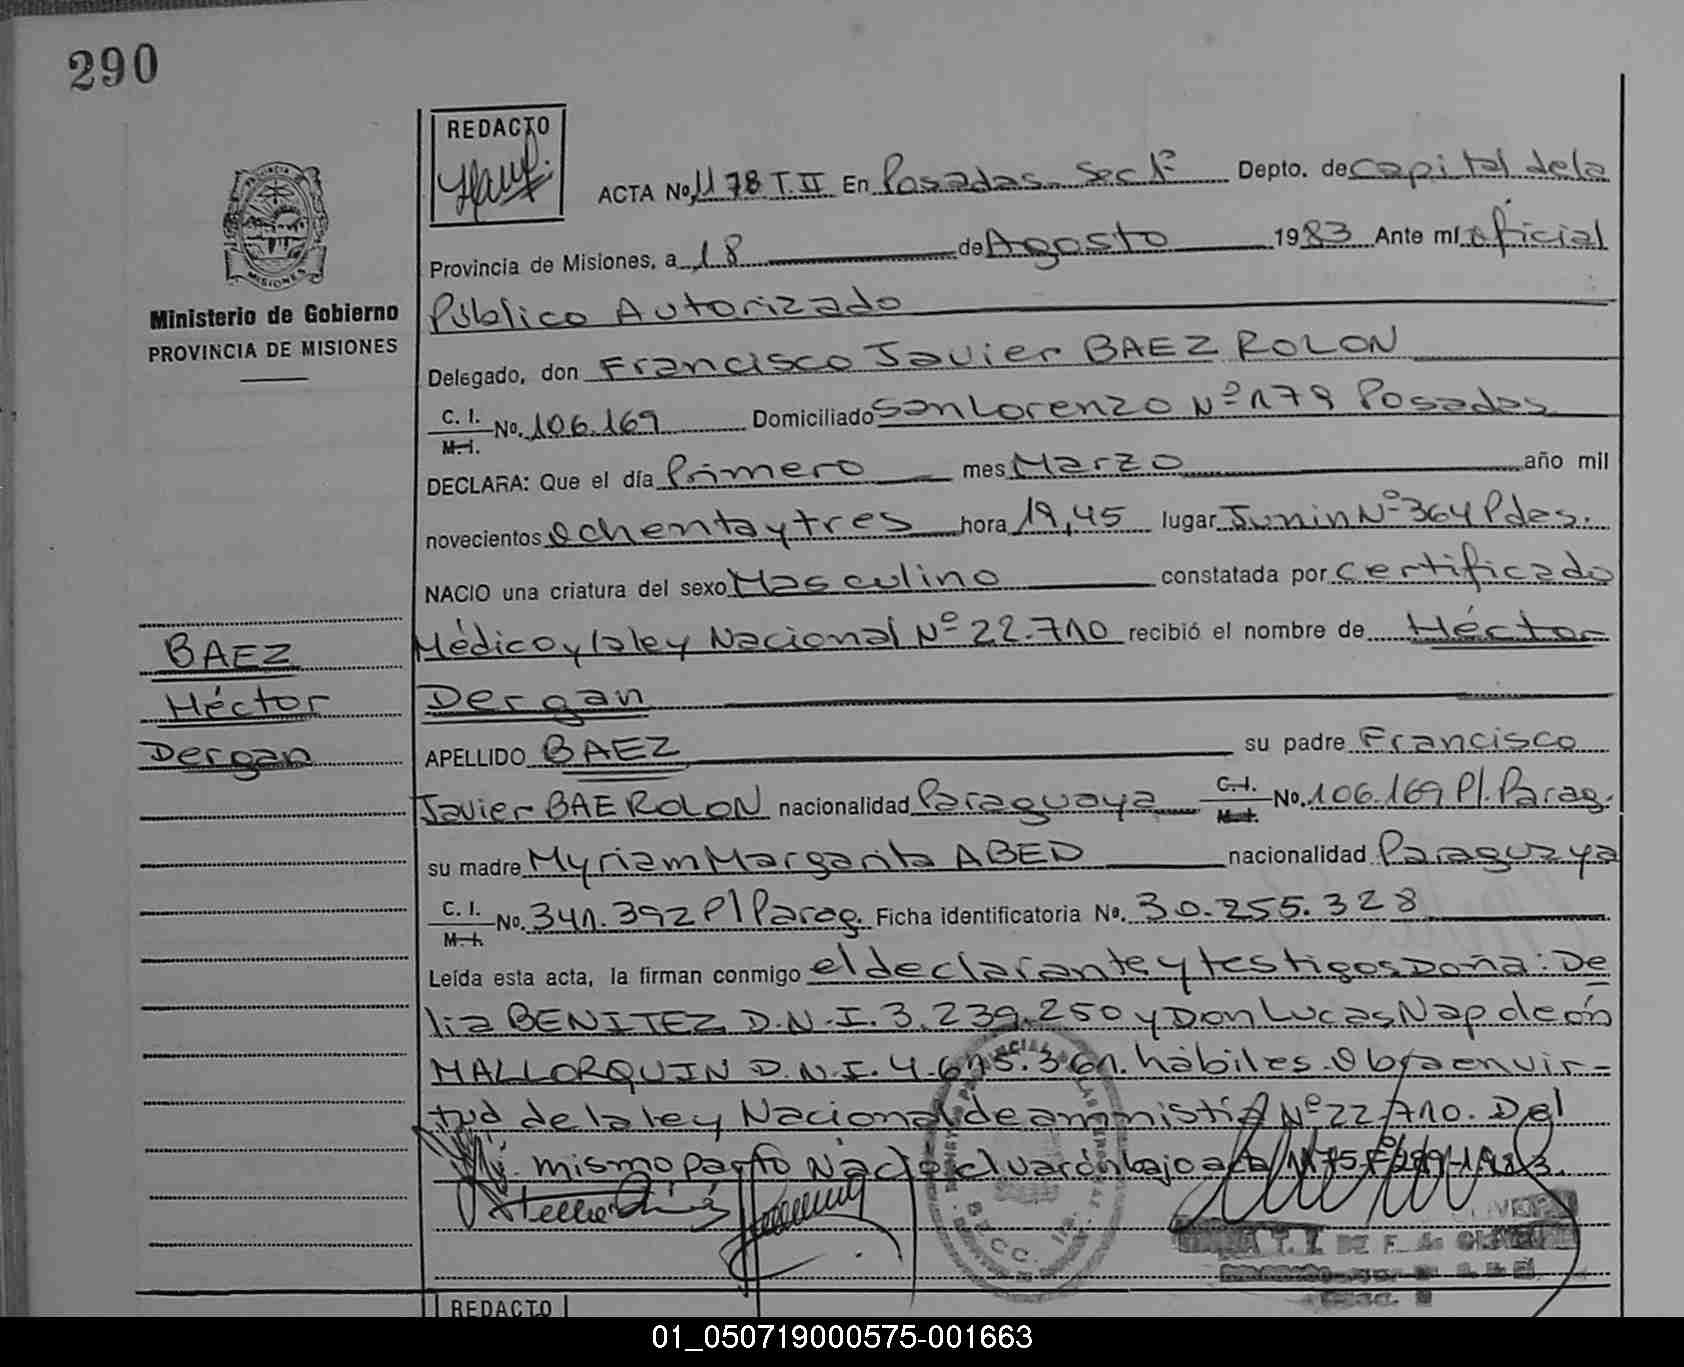 290
REDACTO
ACTA No. 1178 T. II En Posadas Sec 1ª Depto. de Capital de la
Provincia de Misiones, a 18 de Agosto 1983 Ante mí Oficial
Público Autorizado
Delegado, don Francisco Javier BAEZ ROLON
C. I.
M. I.
No. 106.169 Domiciliado San Lorenzo Nº 179 Posadas
DECLARA: Que el día Primero mes Marzo año mil
novecientos Ochenta y tres hora 19,45 lugar Junin Nº 364 Pdas.
NACIO una criatura del sexo Masculino constatada por certificado
Médico y la ley Nacional Nº 22.710 recibió el nombre de Héctor
Dergan
APELLIDO BAEZ su padre Francisco
Javier BAE ROLON nacionalidad Paraguaya C. I. M. I. No. 106.169 Pl. Parag.
su madre Myriam Margarita ABED nacionalidad Paraguaya
C. I.
M. I.
No. 341.392 Pl Parag. Ficha identificatoria No. 30.255.328
Leída esta acta, la firman conmigo el declarante y testigos Doña: De
lia BENITEZ D.N.I. 3.239.250 y Don Lucas Napoleón
MALLORQUIN D.N.I. 4.675.361. hábiles. Obra en vir-
tud de la ley Nacional de amnistía Nº 22.710. Del
mismo parto Nació el varón bajo acta
MISIONES
Ministerio de Gobierno
PROVINCIA DE MISIONES
BAEZ
Héctor
Dergan
REDACTO
01_050719000575-001663